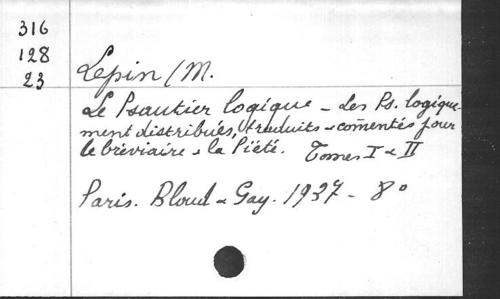 316
128
23
Lepin / M.
Le Psautier logique - Les Ps. logique-
ment distribués, traduits & comentés pour
le bréviaire & la Piété. Tomes I & II
Paris. Bloud & Gay. 1937 - 8°